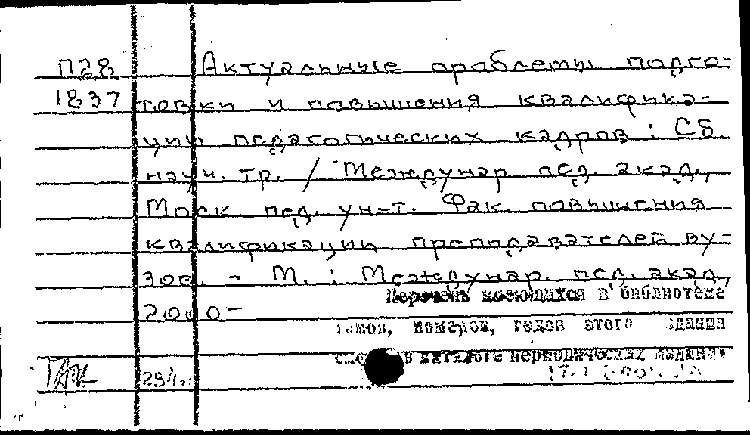 П28 Актуальные проблемы подго-
1837 товки и повышения квалифика-
ции педагогических кадров : Сб.
науч. тр. / Междунар пед. акад.,
Моск пед. ун-т. Фак. повышения
квалификации преподавателей ву-
зов. - М. : Междунар. пед. акад.,
2000-
Перечень имеющихся в библиотеке
томов, номеров, годов этого издания
в каталоге периодических изданий